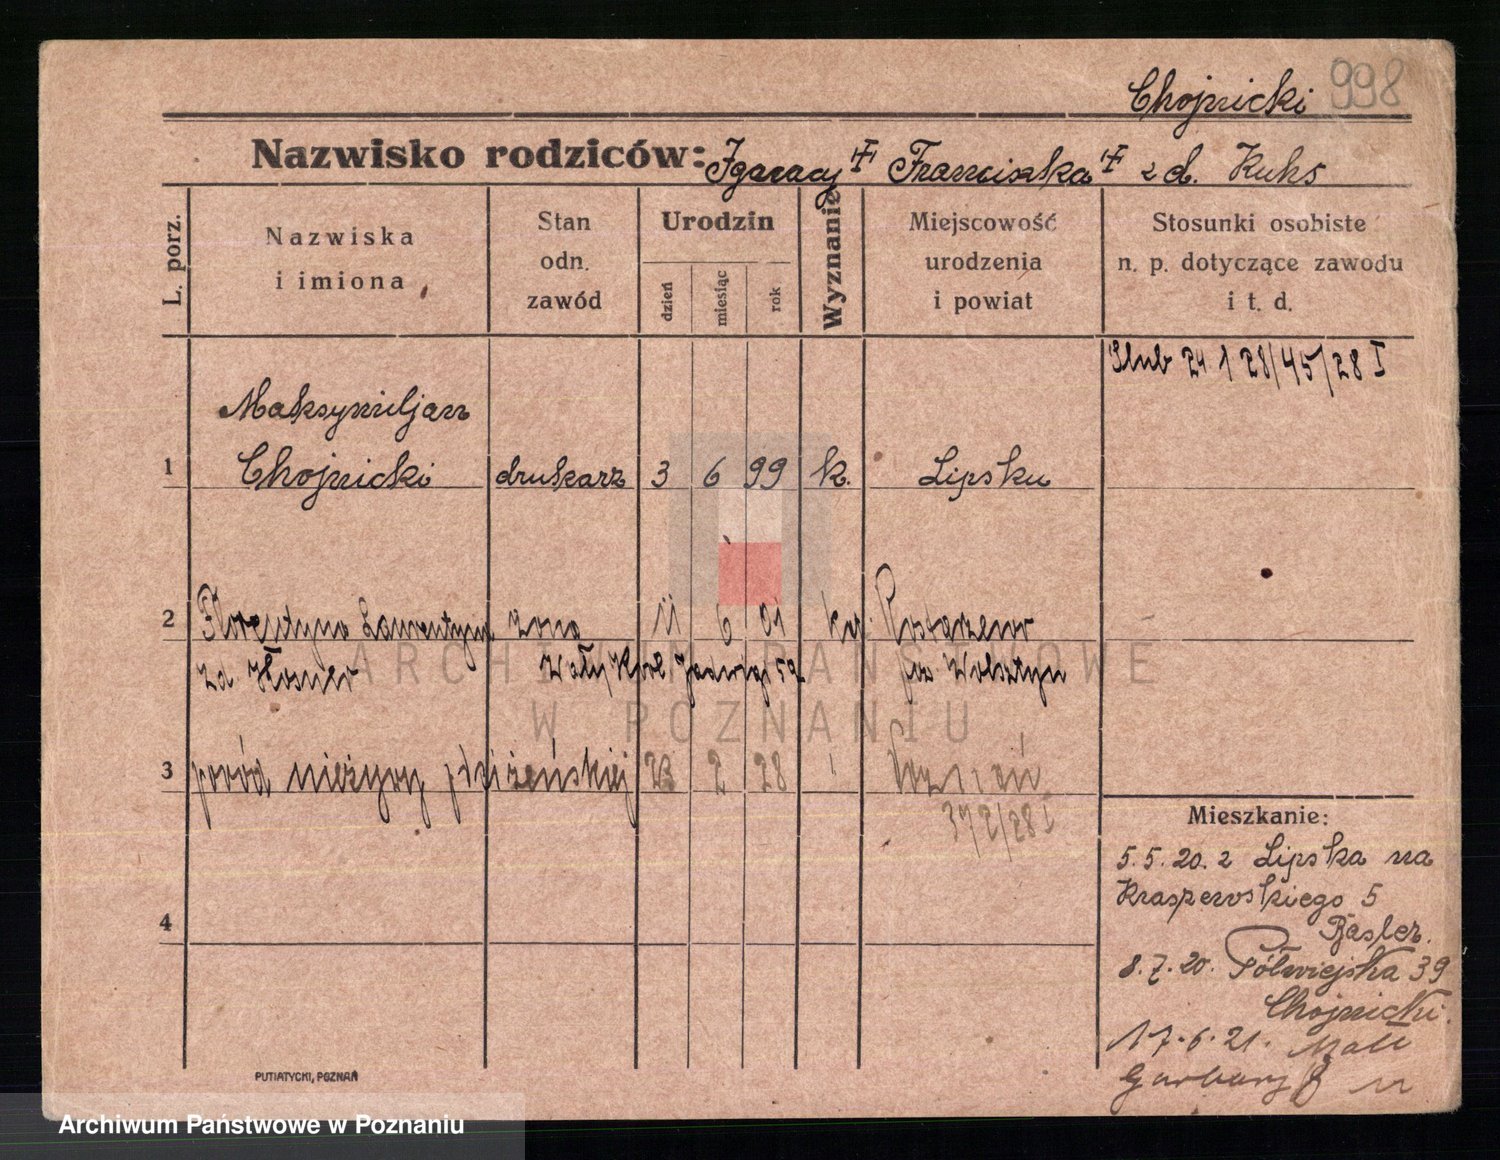 Chojnicki 998
Nazwisko rodziców: Ignacy Franciszka z d. Kuhs
L. porz.
Nazwiska
i imiona
Stan
odn.
zawód
Urodzin
dzień
miesiąc
rok
Wyznanie
Miejscowość
urodzenia
i powiat
Stosunki osobiste
n. p. dotyczące zawodu
i t. d.
Ślub 24 1 28/45/28 I
Maksymiljan
1 Chojnicki drukarz 3 6 99 k. Lipsku
2 Florentyna Lawentyna żona 11 6 01 kat. Rostarzewo
za Wały Król Jadwigi 5a pow Wolsztyn
3 poród nieżywy płci żeńskiej 23 2 28 Poznań
372/28 I
Mieszkanie:
5.5.20. z Lipska na
Kraszewskiego 5
Basler.
4
8.7.20. Półwiejska 39
Chojnicki.
17.6.21. Małe
Garbary 8
PUTIATYCKI, POZNAŃ
ARCHIWUM PAŃSTWOWE
W POZNANIU
Archiwum Państwowe w Poznaniu